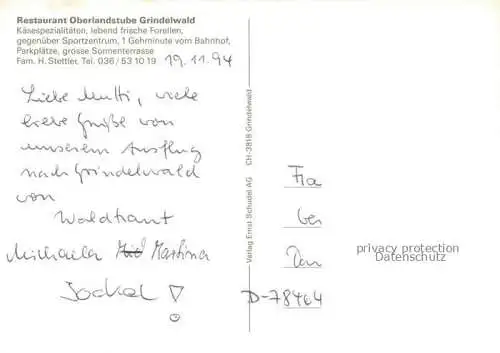 Restaurant Oberlandstube Grindelwald
Käsespezialitäten, lebend frische Forellen,
gegenüber Sportzentrum, 1 Gehminute vom Bahnhof,
Parkplätze, grosse Sonnenterrasse
Fam. H. Stettler, Tel. 036/53 10 19
19.11.94
Liebe Mutti, viele
liebe Grüße von
unserem Ausflug
nach Grindelwald
von
Waldtraut
Michaela Martina
Jockel !
Verlag Ernst Schudel AG CH-3818 Grindelwald
Fra
ber
D-78464
privacy protection
Datenschutz